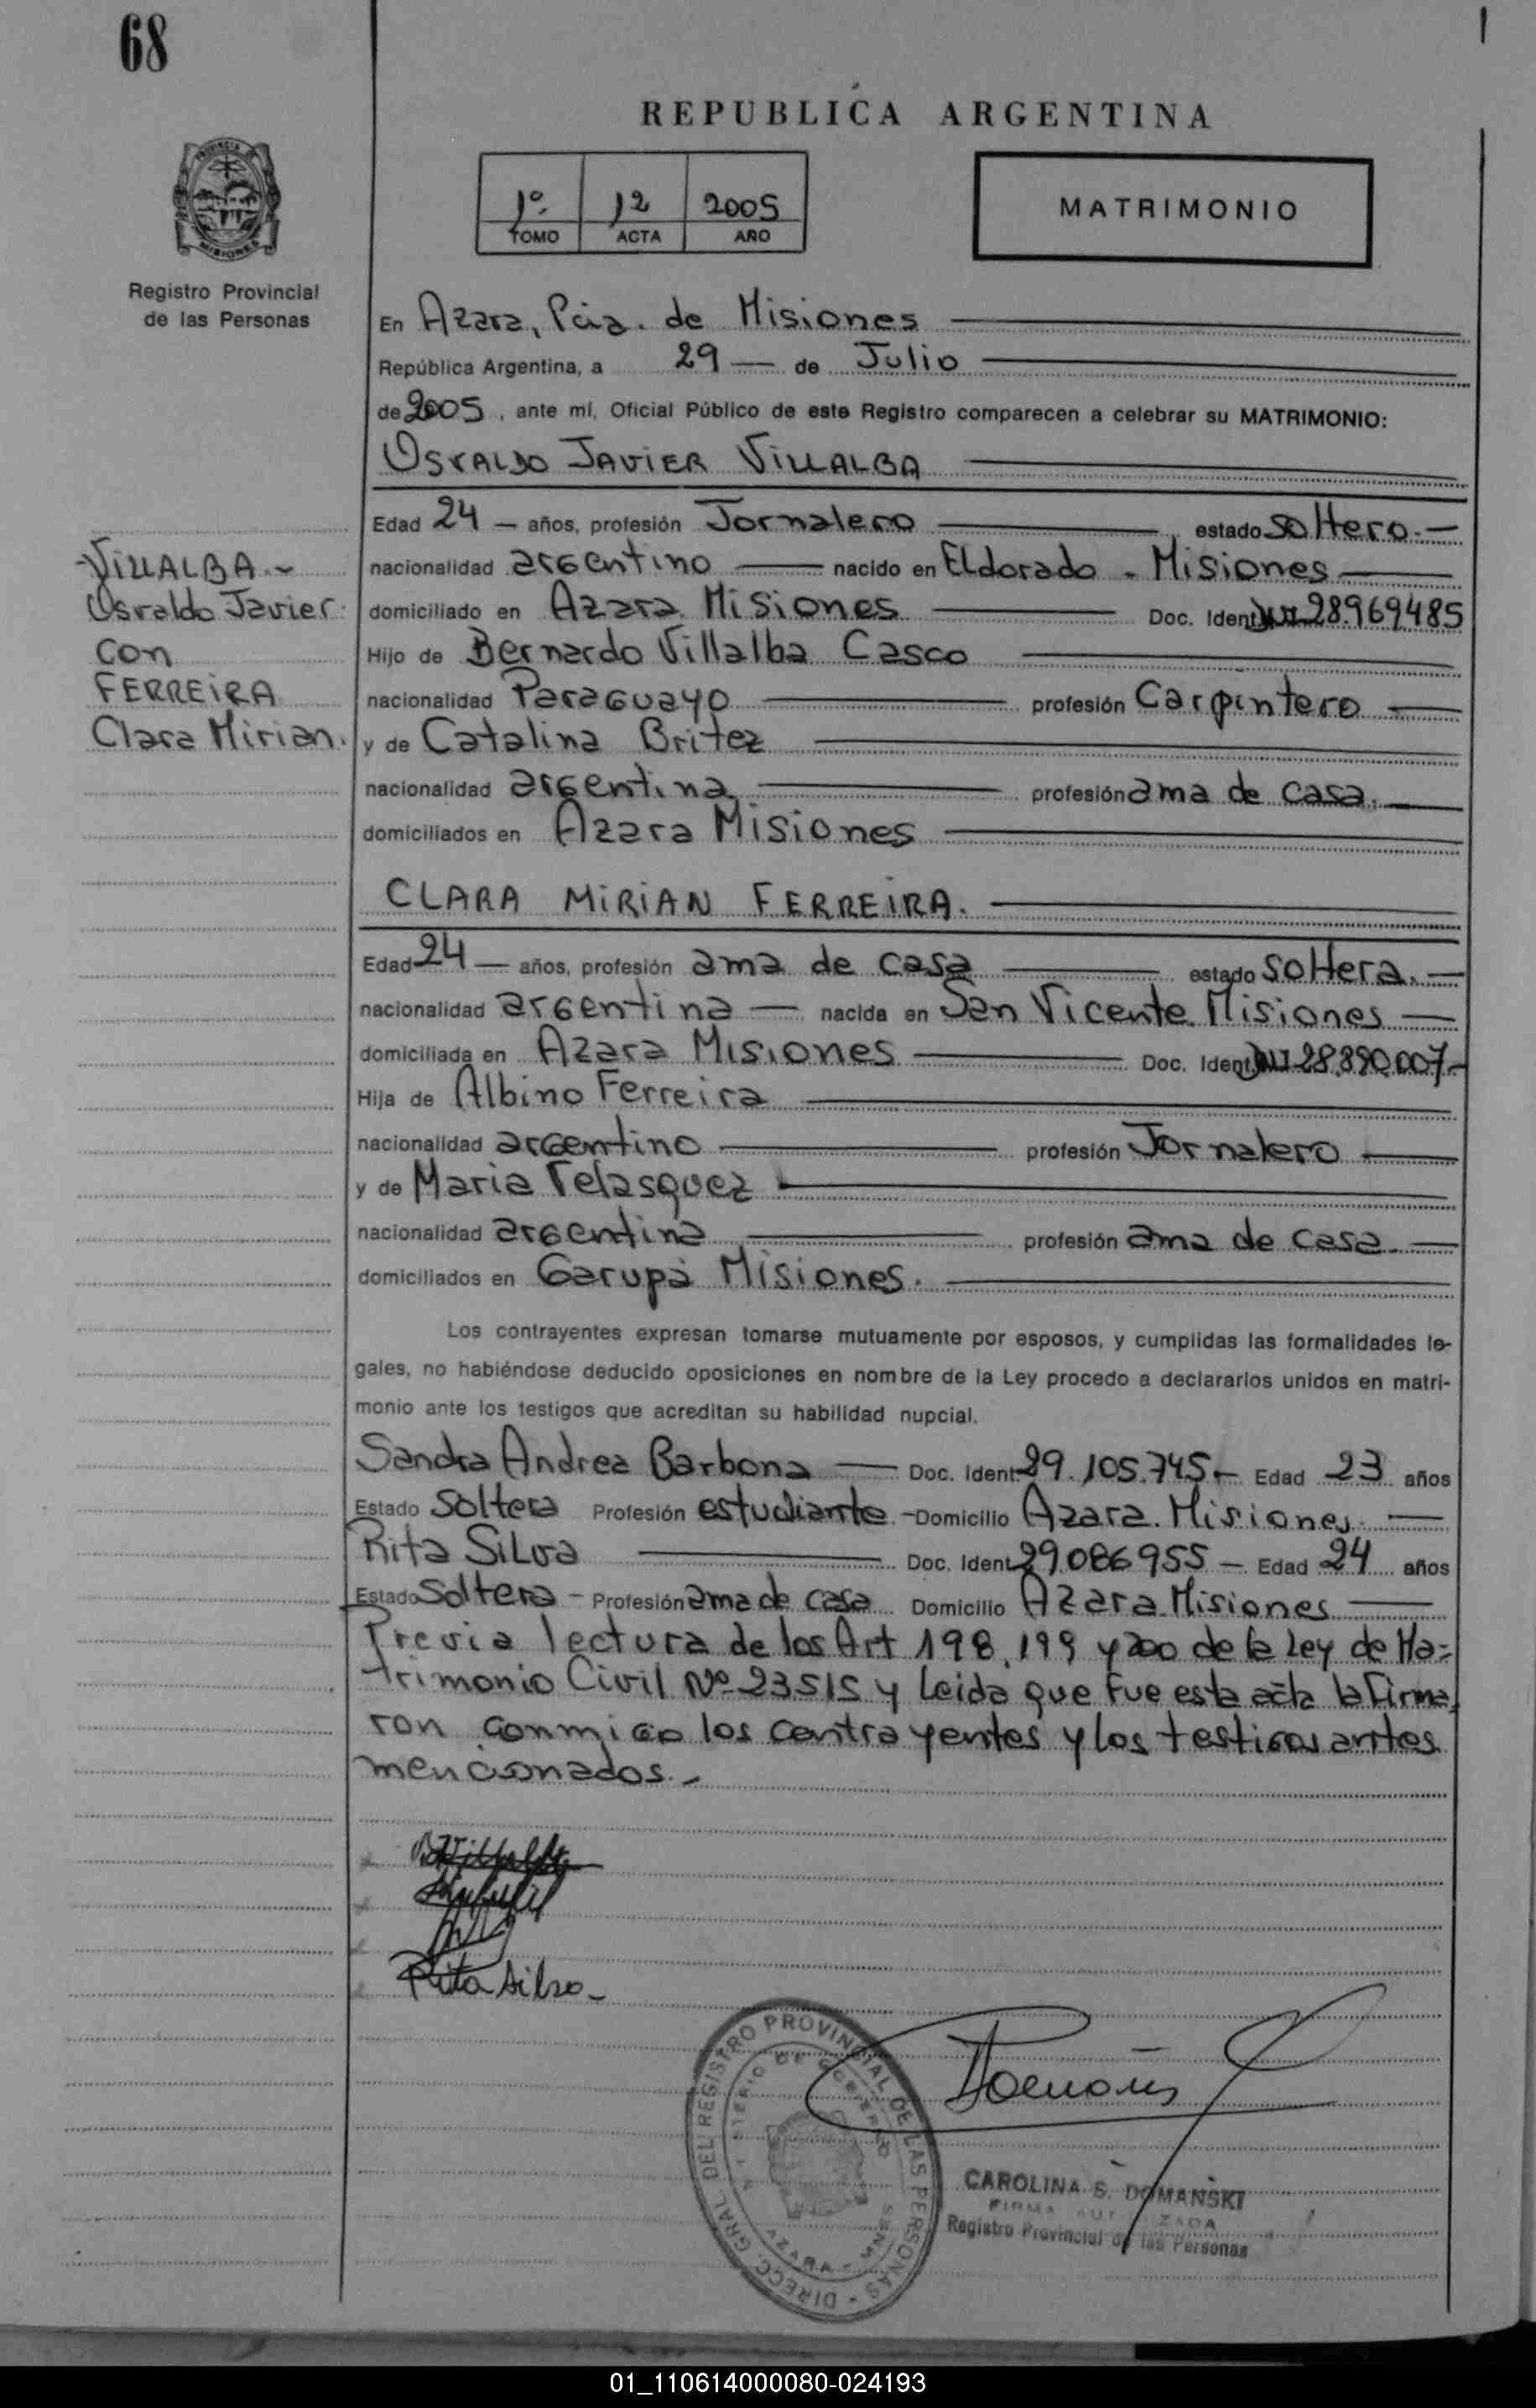 68
REPUBLICA ARGENTINA
1º 12 2005
TOMO ACTA AÑO
MATRIMONIO
Registro Provincial
de las Personas
En Azara, Pcia. de Misiones
República Argentina, a 29 — de Julio
de 2005, ante mí, Oficial Público de este Registro comparecen a celebrar su MATRIMONIO:
OSVALDO JAVIER VILLALBA
Edad 24 — años, profesión Jornalero estado soltero.—
nacionalidad argentino — nacido en Eldorado - Misiones —
domiciliado en Azara Misiones Doc. Ident. DNI 28.969485
Hijo de Bernardo Villalba Casco
nacionalidad Paraguayo profesión Carpintero —
y de Catalina Britez
nacionalidad argentina profesión ama de casa.
domiciliados en Azara Misiones
VILLALBA.-
Osvaldo Javier
con
FERREIRA
Clara Mirian.
CLARA MIRIAN FERREIRA.
Edad 24 — años, profesión ama de casa estado soltera.—
nacionalidad argentina — nacida en San Vicente Misiones —
domiciliada en Azara Misiones Doc. Ident. DNI 28.890.007-
Hija de Albino Ferreira
nacionalidad argentino profesión Jornalero
y de Maria Velasquez
nacionalidad argentina profesión ama de casa.—
domiciliados en Garupá Misiones.
Los contrayentes expresan tomarse mutuamente por esposos, y cumplidas las formalidades le-
gales, no habiéndose deducido oposiciones en nombre de la Ley procedo a declararlos unidos en matri-
monio ante los testigos que acreditan su habilidad nupcial.
Sandra Andrea Barbona — Doc. Ident. 29.105.745.- Edad 23 años
Estado Soltera Profesión estudiante - Domicilio Azara. Misiones. —
Rita Silva Doc. Ident. 29.086955 — Edad 24 años
Estado Soltera - Profesión ama de casa Domicilio Azara Misiones —
Previa lectura de los Art 198, 199 y 200 de la Ley de Ma-
trimonio Civil Nº 23515 y leida que fue esta acta la firma
ron conmigo los contrayentes y los testigos antes
mencionados.-
Rita Silva-
DIRECC. GRAL. DEL REGISTRO PROVINCIAL DE LAS PERSONAS -
MINISTERIO DE GOBIERNO
AZARA
CAROLINA S. DOMANSKI
FIRMA AUTORIZADA
Registro Provincial de las Personas
01_110614000080-024193